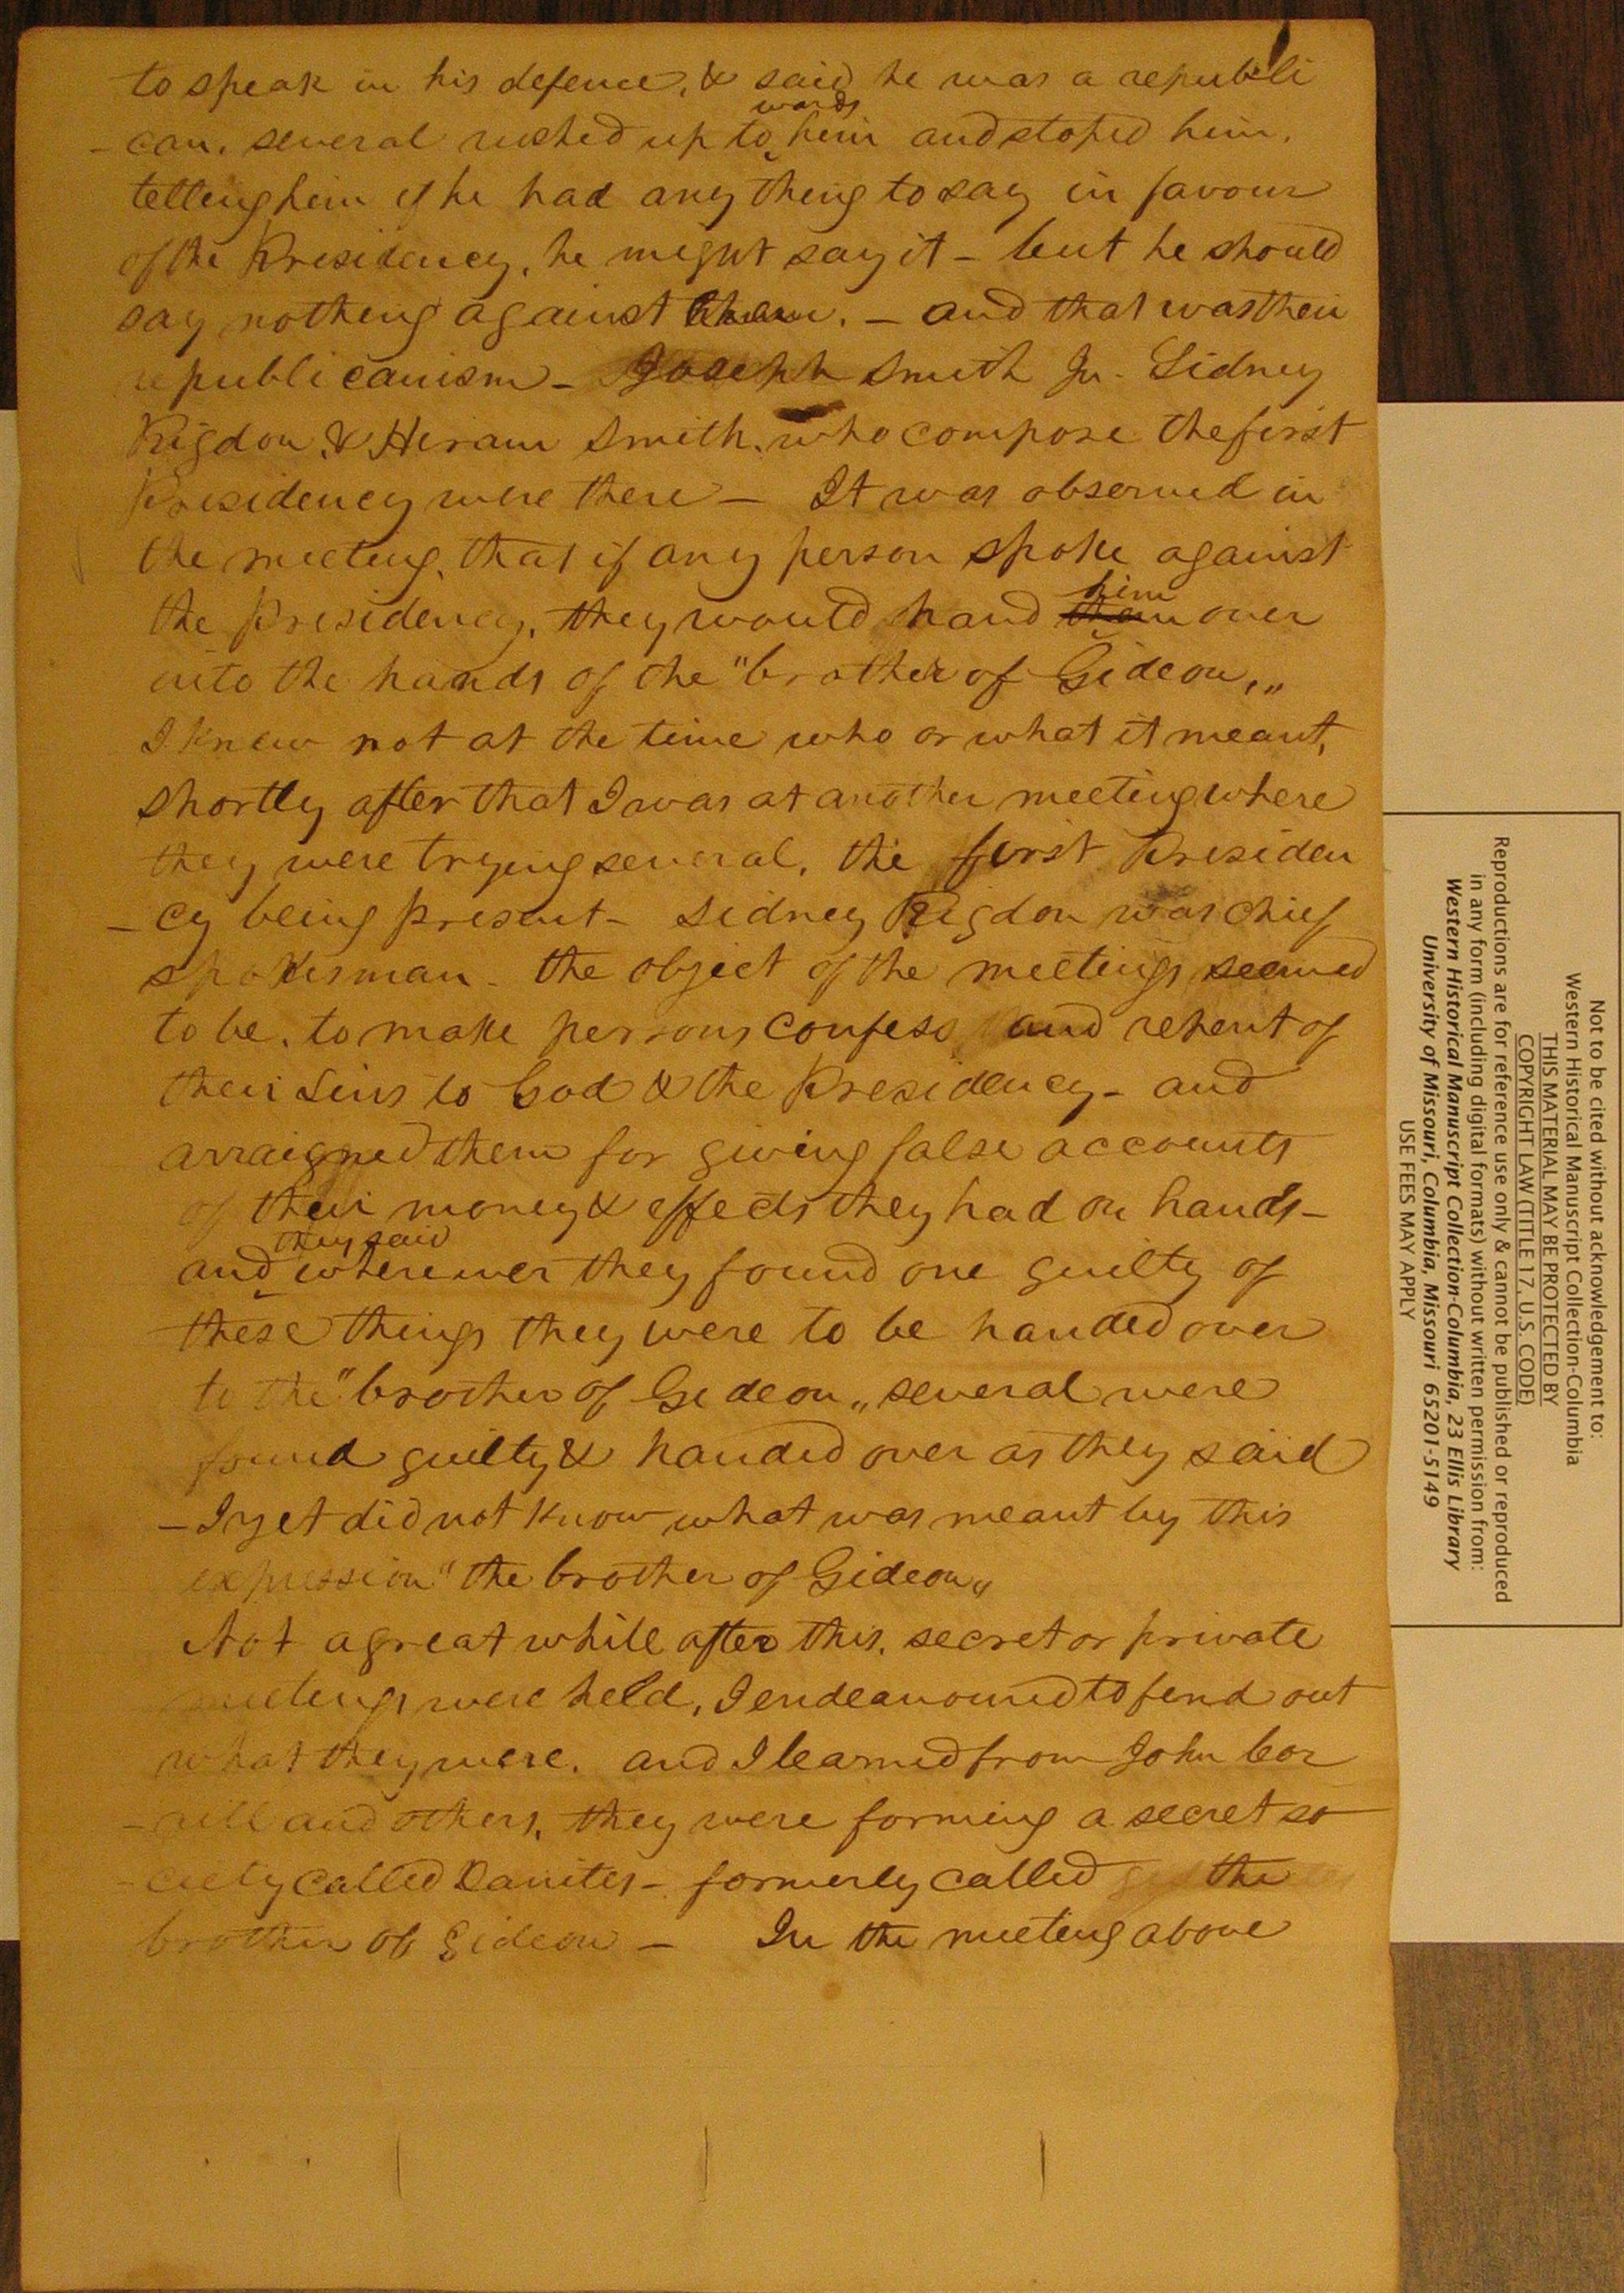 to speak in his defence, & said he was a republi
- can. several rushed up to wards him and stoped him.
telling him if he had any thing to say in favour
of the Presidency, he might say it - but he should
say nothing against them. - and that was their
republicanism - Joseph Smith Jr. Sidney
Rigdon, & Hiram Smith, who compose the first
Presidency were there - It was observed in
the meeting, that if any person spoke against
the Presidency, they would hand them him over
into the hands of the "brother of Gideon,"
I knew not at the time who or what it meant,
shortly after that I was at another meeting where
they were trying several, the first Presiden
- cy being present - Sidney Rigdon was chief
spokesman - the object of the meetings seemed
to be, to make persons confess and repent of
their Sins to God & the Presidency - and
arraigned them for giving false accounts
of their money & effects they had on hands -
and they said wherever they found one guilty of
these things they were to be handed over
to the "brother of Gideon" several were
found guilty & handed over as they said
- I yet did not know what was meant by this
expression "the brother of Gideon"
Not a great while after this, secret or private
meetings were held, I endeavoured to find out
what they were. and I learned from John Cor
- rill and others, they were forming a secret so
- ciety called Danites - formerly called the
brother of Gideon - In the meeting above
Not to be cited without acknowledgement to:
Western Historical Manuscript Collection-Columbia
THIS MATERIAL MAY BE PROTECTED BY
COPYRIGHT LAW (TITLE 17, U.S. CODE)
Reproductions are for reference use only & cannot be published or reproduced
in any form (including digital formats) without written permission from:
Western Historical Manuscript Collection-Columbia, 23 Ellis Library
University of Missouri, Columbia, Missouri 65201-5149
USE FEES MAY APPLY